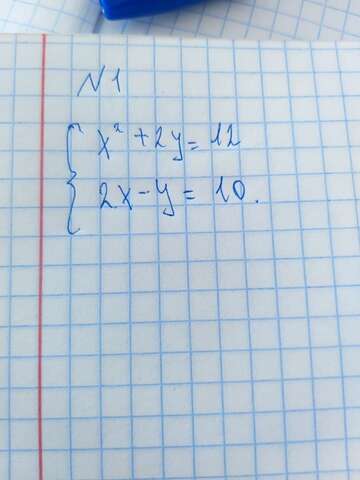 N1
x² + 2y = 12
2x - y = 10.